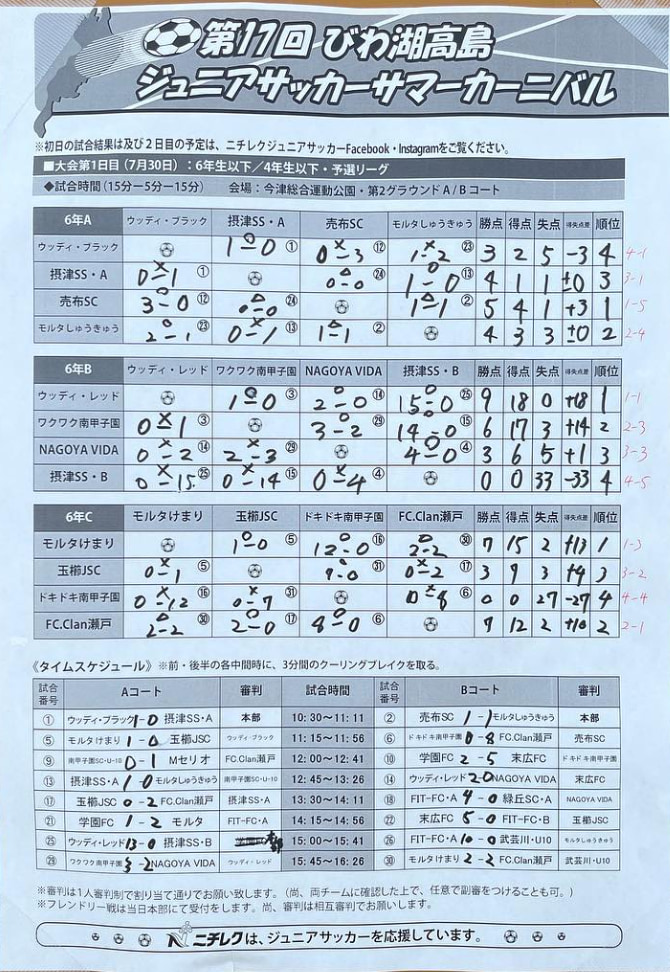 第17回 びわ湖高島
ジュニアサッカーサマーカーニバル
※初日の試合結果は及び2日目の予定は、ニチレクジュニアサッカーFacebook・Instagramをご覧ください。
■大会第1日目（7月30日）：6年生以下／4年生以下・予選リーグ
◆試合時間（15分ー5分ー15分） 会場：今津総合運動公園・第2グラウンドA/Bコート
6年A ウッディ・ブラック 摂津SS・A 売布SC モルタしゅうきゅう 勝点 得点 失点 得失点差 順位
ウッディ・ブラック 1-0 ① 0-3 ⑫ 1-2 ㉓ 3 2 5 -3 4 4-1
摂津SS・A 0-1 ① 0-0 ㉔ 1-0 ⑬ 4 1 1 ±0 3 3-1
売布SC 3-0 ⑫ 0-0 ㉔ 1-1 ② 5 4 1 +3 1 1-5
モルタしゅうきゅう 2-1 ㉓ 0-1 ⑬ 1-1 ② 4 3 3 ±0 2 2-4
6年B ウッディ・レッド ワクワク南甲子園 NAGOYA VIDA 摂津SS・B 勝点 得点 失点 得失点差 順位
ウッディ・レッド 1-0 ③ 2-0 ⑭ 15-0 ㉕ 9 18 0 +18 1 1-1
ワクワク南甲子園 0-1 ③ 3-2 ㉙ 14-0 ⑮ 6 17 3 +14 2 2-3
NAGOYA VIDA 0-2 ⑭ 2-3 ㉙ 4-0 ④ 3 6 5 +1 3 3-3
摂津SS・B 0-15 ㉕ 0-14 ⑮ 0-4 ④ 0 0 33 -33 4 4-5
6年C モルタけまり 玉櫛JSC ドキドキ南甲子園 FC.Clan瀬戸 勝点 得点 失点 得失点差 順位
モルタけまり 1-0 ⑤ 12-0 ⑯ 2-2 ㉚ 7 15 2 +13 1 1-3
玉櫛JSC 0-1 ⑤ ㉛ 0-2 ⑰ 3 9 3 3 3-2
ドキドキ南甲子園 0-12 ⑯ 0-7 ㉛ 0-8 ⑥ 0 0 27 -27 4 4-4
FC.Clan瀬戸 2-2 ㉚ 2-0 ⑰ 8-0 ⑥ 7 12 2 +10 2 2-1
《タイムスケジュール》※前・後半の各中間時に、3分間のクーリングブレイクを取る。
試合番号 Aコート 審判 試合時間 試合番号 Bコート 審判
① ウッディ・ブラック 1-0 摂津SS・A 本部 10:30～11:11 ② 売布SC 1-1 モルタしゅうきゅう 本部
⑤ モルタけまり 1-0 玉櫛JSC ウッディ・ブラック 11:15～11:56 ⑥ ドキドキ南甲子園 0-8 FC.Clan瀬戸 売布SC
⑨ 南甲子園SC・U-10 0-1 Mセリオ FC.Clan瀬戸 12:00～12:41 ⑩ 学園FC 2-5 末広FC ドキドキ南甲子園
⑬ 摂津SS・A 1-0 モルタしゅうきゅう 南甲子園SC・U-10 12:45～13:26 ⑭ ウッディ・レッド 2-0 NAGOYA VIDA 末広FC
⑰ 玉櫛JSC 0-2 FC.Clan瀬戸 摂津SS・A 13:30～14:11 ⑱ FIT-FC・A 4-0 緑丘SC・A NAGOYA VIDA
㉑ 学園FC 1-2 モルタ FIT-FC・A 14:15～14:56 ㉒ 末広FC 5-0 FIT-FC・B 玉櫛JSC
㉕ ウッディ・レッド 摂津SS・B 本部 15:00～15:41 ㉖ FIT-FC・A 10-0 武芸川・U10 モルタしゅうきゅう
㉙ ワクワク南甲子園 3-2 NAGOYA VIDA ウッディ・レッド 15:45～16:26 ㉚ モルタけまり 2-2 FC.Clan瀬戸 武芸川・U10
※審判は1人審判制で割り当て通りでお願い致します。（尚、両チームに確認した上で、任意で副審をつけることも可。）
※フレンドリー戦は当日本部にて受付をします。尚、審判は相互審判でお願いします。
ニチレクは、ジュニアサッカーを応援しています。